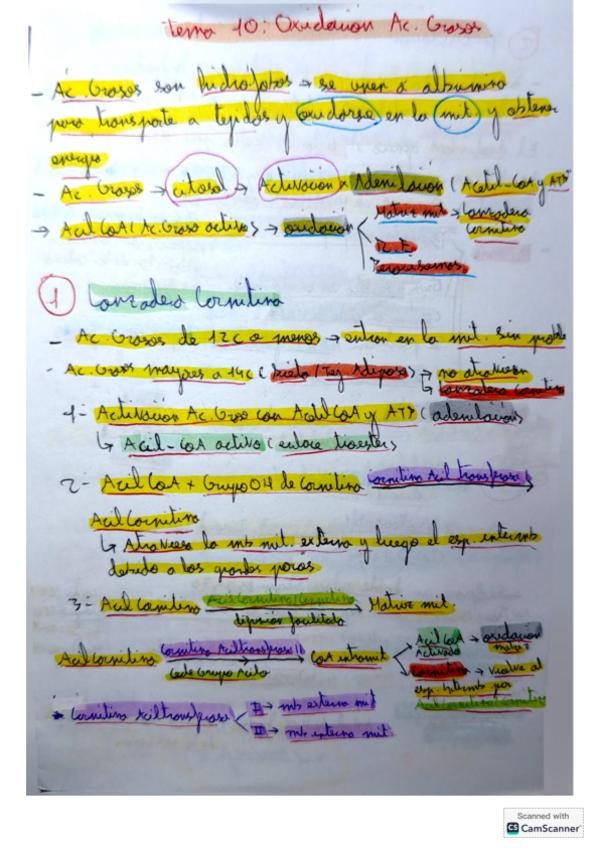 tema 10: Oxidación Ac. Grasos
- Ác. Grasos son hidrófobos → se unen a albúmina
para transporte a tejidos y oxidarse en la mit. y obtener
energía
- Ac. Grasos → citosol → Activación x Adenilación (Acetil-CoA y ATP
→ Acil CoA (Ac. Graso activo) → oxidación
Matriz mit → Lanzadera Carnitina
R.E
Peroxisomas
1 Lanzadera Carnitina
- Ac. Grasos de 12C o menos → entran en la mit. sin proble
- Ac. Grasos mayores a 14C (Dieta / Tej Adiposo) → no atraviesan
↳ Lanzadera Carnitina
1- Activación Ac Graso con Acetil CoA y ATP (adenilación)
↳ Acil-CoA activo (enlace tioester)
2- Acil CoA + Grupo OH de Carnitina Carnitina Acil transferasa I
Acil Carnitina
↳ Atraviesa la mb mit. externa y luego el esp. intermb
debido a los grandes poros
3- Acil Carnitina Acil Carnitina/Carnitina Matriz mit
difusión facilitada
Acil Carnitina Carnitina Aciltransferasa II CoA intramit
Cede Grupo Acilo
Acil CoA Activado → oxidación matriz
Carnitina → vuelve al
esp. intermb por
Acil Carnitina/Carnitina
* Carnitina Aciltransferasa
I → mb externa mit
II → mb interna mit
Scanned with
CS CamScanner